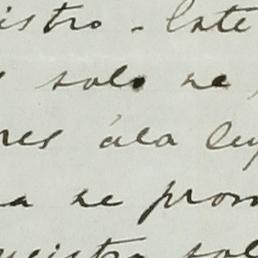 istro - Este
solo se
res á la ley
a se prom
uestra sol